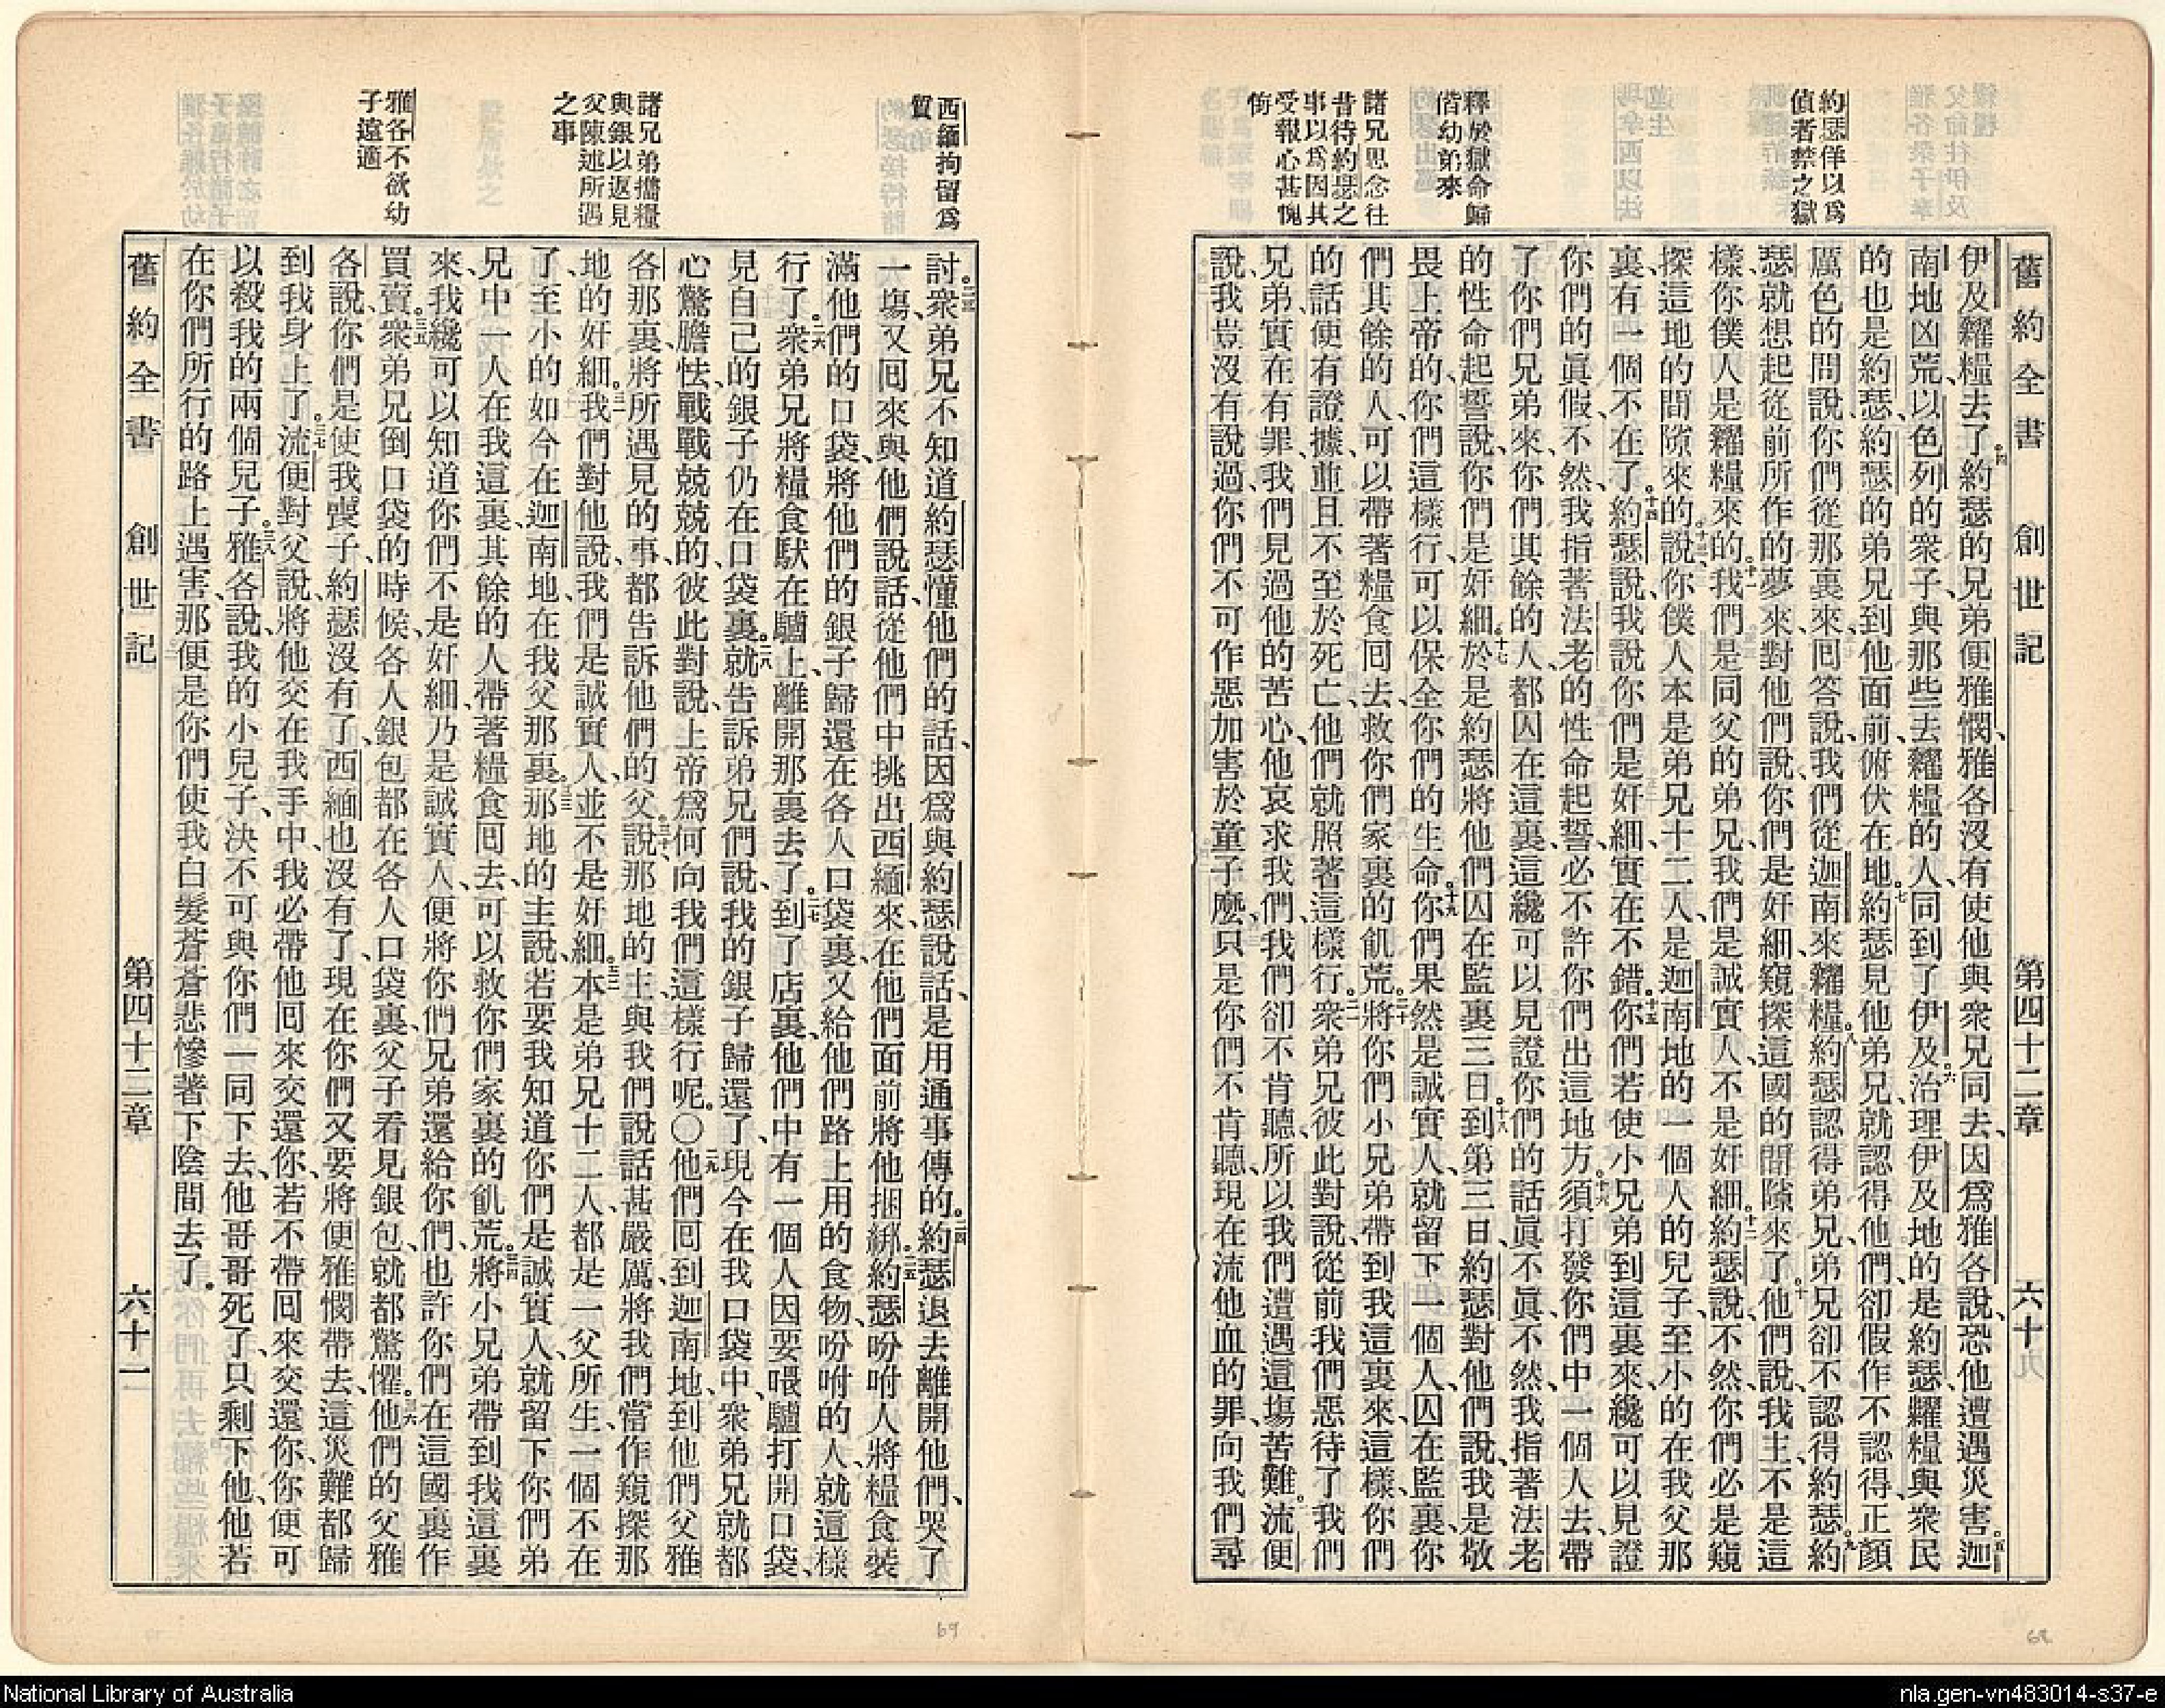 舊約全書 創世記 第四十二章 六十九
約瑟佯以爲
偵者禁之獄
釋於獄命歸
偕幼弟來
諸兄思念往
昔待約瑟之
事以爲因其
受報心甚愧
伊及糴糧去了。四約瑟的兄弟便雅憫、雅各沒有使他與衆兄同去、因爲雅各說、恐他遭遇災害。五迦
南地凶荒、以色列的衆子、與那些去糴糧的人、同到了伊及。六治理伊及地的是約瑟、糶糧與衆民
的也是約瑟、約瑟的弟兄到他面前、俯伏在地。七約瑟見他弟兄、就認得他們、卻假作不認得、正顏
厲色的問說、你們從那裏來、回答說、我們從迦南來糴糧。八約瑟認得弟兄、弟兄卻不認得約瑟。九約
瑟就想起從前所作的夢來、對他們說、你們是奸細、窺探這國的間隙來了。十他們說、我主、不是這
樣、你僕人是糴糧來的。十一我們是同父的弟兄、我們是誠實人、不是奸細。十二約瑟說、不然、你們必是窺
探這地的間隙來的。十三說、你僕人本是弟兄十二人、是迦南地的一個人的兒子、至小的在我父那
裏、有一個不在了。十四約瑟說、我說你們是奸細、實在不錯。十五你們若使小兄弟到這裏來、纔可以見證
你們的眞假、不然、我指著法老的性命起誓、必不許你們出這地方。十六須打發你們中一個人去、帶
了你們兄弟來、你們其餘的人、都囚在這裏、這纔可以見證你們的話眞不眞、不然、我指著法老
的性命起誓說、你們是奸細。十七於是約瑟將他們囚在監裏三日。十八到第三日、約瑟對他們說、我是敬
畏上帝的、你們這樣行、可以保全你們的生命。十九你們果然是誠實人、就留下一個人、囚在監裏、你
們其餘的人、可以帶著糧食回去、救你們家裏的飢荒。二十將你們小兄弟帶到我這裏來、這樣、你們
的話便有證據、並且不至於死亡、他們就照著這樣行。二一衆弟兄彼此對說、從前我們惡待了我們
兄弟、實在有罪、我們見過他的苦心、他哀求我們、我們卻不肯聽、所以我們遭遇這塲苦難。流便
說、我豈沒有說過、你們不可作惡加害於童子麼、只是你們不肯聽、現在流他血的罪、向我們尋
西緬拘留爲
質
諸兄弟攜糧
與銀以返見
父陳述所遇
之事
雅各不欲幼
子遠適
討。二三衆弟兄不知道約瑟懂他們的話、因爲與約瑟說話、是用通事傳的。二四約瑟退去離開他們、哭了
一塲、又回來與他們說話、從他們中挑出西緬來、在他們面前將他捆綁。二五約瑟吩咐人將糧食裝
滿他們的口袋、將他們的銀子歸還在各人口袋裏、又給他們路上用的食物、吩咐的人、就這樣
行了。二六衆弟兄將糧食馱在驢上、離開那裏去了。二七到了店裏、他們中有一個人因要喂驢、打開口袋、
見自己的銀子仍在口袋裏。二八就告訴弟兄們說、我的銀子歸還了、現今在我口袋中、衆弟兄就都
心驚膽怯、戰戰兢兢的、彼此對說、上帝爲何向我們這樣行呢。〇二九他們回到迦南地、到他們父雅
各那裏、將所遇見的事、都告訴他們的父說。三十那地的主、與我們說話甚嚴厲、將我們當作窺探那
地的奸細。三一我們對他說、我們是誠實人、並不是奸細。三二本是弟兄十二人、都是一父所生、一個不在
了、至小的如今在迦南地在我父那裏。三三那地的主說、若要我知道你們是誠實人、就留下你們弟
兄中一人在我這裏、其餘的人帶著糧食回去、可以救你們家裏的飢荒。三四將小兄弟帶到我這裏
來、我纔可以知道你們不是奸細、乃是誠實人、便將你們兄弟還給你們、也許你們在這國裏作
買賣。三五衆弟兄倒口袋的時候、各人銀包都在各人口袋裏、父子看見銀包、就都驚懼。三六他們的父雅
各說、你們是使我喪子、約瑟沒有了、西緬也沒有了、現在你們又要將便雅憫帶去、這災難都歸
到我身上了。三七流便對父說、將他交在我手中、我必帶他回來交還你、若不帶回來交還你、你便可
以殺我的兩個兒子。三八雅各說、我的小兒子、決不可與你們一同下去、他哥哥死了、只剩下他、他若
在你們所行的路上遇害、那便是你們使我白髮蒼蒼悲慘著下陰間去了。
舊約全書 創世記 第四十二章 六十一
69
68
National Library of Australia
nla.gen-vn483014-s37-e